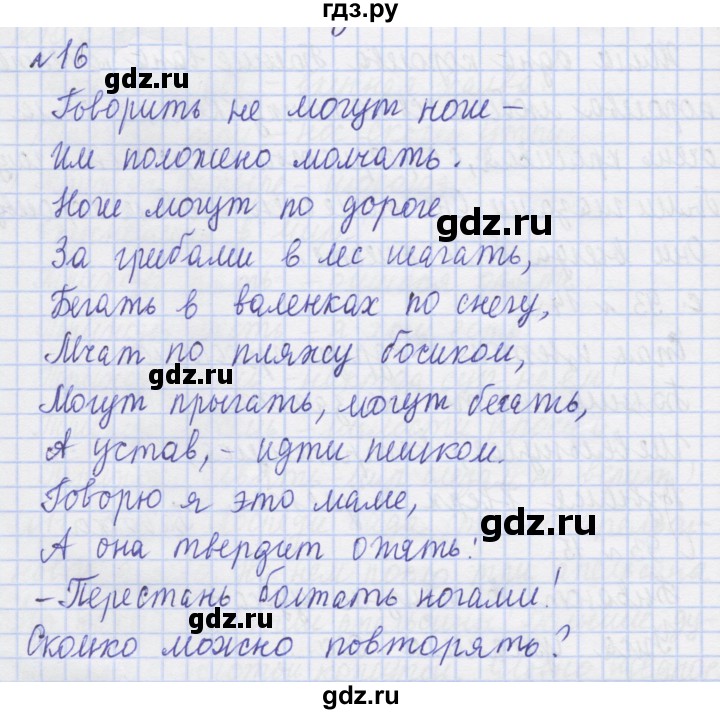 гдз.ру
№16
Говорить не могут ноги –
Им положено молчать.
Ноги могут по дороге
gdz.ru
За грибами в лес шагать,
Бегать в валенках по снегу,
Мчат по пляжу босиком,
gdz.ru
Могут прыгать, могут бегать,
А устав, – идти пешком.
Говорю я это маме,
gdz.ru
А она твердит опять:
– Перестань болтать ногами!
gdz.ru
Сколько можно повторять?
gdz.ru